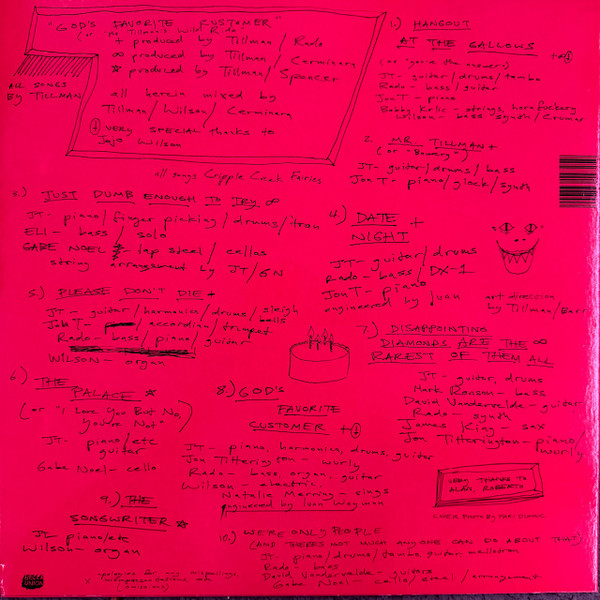 "GOD'S FAVORITE CUSTOMER"
+ produced by Tillman/Rado
∞ produced by Tillman/Cerminara
☆ produced by Tillman/Spencer
all herein mixed by
Tillman/Wilson/Cerminara
very special thanks to
Jojo Wilson
ALL SONGS
BY TILLMAN
all songs Cripple Creek Fairies
1.) HANGOUT
AT THE GALLOWS
JT- guitar/drums/tamba
Rado- bass/guitar
JonT- piano
Bobby Krlic- strings, horn
Wilson- bass synth/Crumar
2. MR. TILLMAN +
JT- guitar/drums/bass
JonT- piano/glock/synth
3.) JUST DUMB ENOUGH TO TRY ∞
JT- piano/finger picking/drums/tron
ELI- bass/solo
GABE NOEL- lap steel/cellos
string arrangement by JT/GN
4.) DATE
NIGHT +
JT- guitar/drums
Rado- bass/DX-1
JonT- piano
engineered by Juan
art direction
by Tillman/Barri
5.) PLEASE DON'T DIE +
JT- guitar/harmonica/drums/sleigh
bells
JonT- accordian/trumpet
Rado- bass/piano/guitar
WILSON- organ
6.) THE
PALACE ☆
(or "I Love You But No,
You're Not"
JT- piano/etc
guitar
Gabe Noel- cello
7.) DISAPPOINTING
DIAMONDS ARE THE ∞
RAREST OF THEM ALL
JT- guitar, drums
Mark Ronson- bass
David Vandervelde- guitar
Rado- synth
James King- sax
Jon Titterington- piano/
wurly
8.) GOD'S
FAVORITE
CUSTOMER +
JT- piano, harmonica, drums, guitar
Jon Titterington- wurly
Rado- bass, organ, guitar
Wilson- electric
Natalie Mering- sings
engineered by
9.) THE
SONGWRITER ☆
JT- piano/etc
Wilson- organ
VERY THANKS TO
ALAN ROBERTS
COVER PHOTO BY
10.) WE'RE ONLY PEOPLE
(AND THERE'S NOT MUCH ANYONE CAN DO ABOUT THAT)
JT- piano/drums/tamba, guitar, mellotron
Rado- bass
David Vandervelde- guitars
Gabe Noel- cello/steel/arrangement
apologies for any mispellings